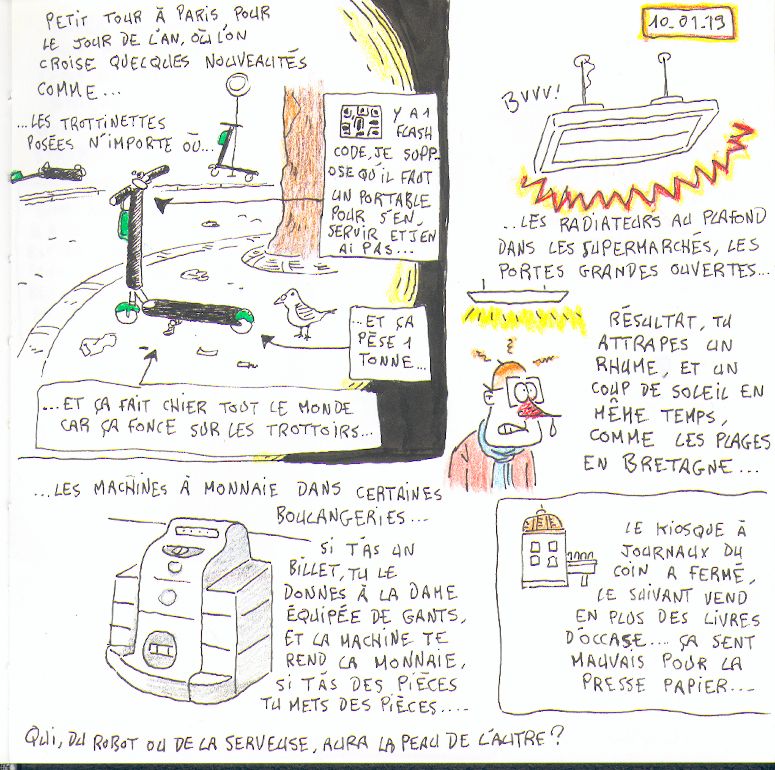 PETIT TOUR À PARIS, POUR
LE JOUR DE L'AN, OÙ L'ON
CROISE QUELQUES NOUVEAUTÉS
COMME...
...LES TROTTINETTES
POSÉES N'IMPORTE OÙ...
Y A 1
FLASH
CODE, JE SUPP-
OSE QU'IL FAUT
UN PORTABLE
POUR S'EN
SERVIR ET J'EN
AI PAS...
...ET ÇA
PÈSE 1
TONNE...
...ET ÇA FAIT CHIER TOUT LE MONDE
CAR ÇA FONCE SUR LES TROTTOIRS...
10-01-19
BVVV!
...LES RADIATEURS AU PLAFOND
DANS LES SUPERMARCHÉS, LES
PORTES GRANDES OUVERTES...
RÉSULTAT, TU
ATTRAPES UN
RHUME, ET UN
COUP DE SOLEIL EN
MÊME TEMPS,
COMME LES PLAGES
EN BRETAGNE...
...LES MACHINES À MONNAIE DANS CERTAINES
BOULANGERIES...
SI T'AS UN
BILLET, TU LE
DONNES À LA DAME
ÉQUIPÉE DE GANTS,
ET LA MACHINE TE
REND LA MONNAIE,
SI T'AS DES PIÈCES
TU METS DES PIÈCES....
LE KIOSQUE À
JOURNAUX DU
COIN A FERMÉ,
LE SUIVANT VEND
EN PLUS DES LIVRES
D'OCCASE.... ÇA SENT
MAUVAIS POUR LA
PRESSE PAPIER...
QUI, DU ROBOT OU DE LA SERVEUSE, AURA LA PEAU DE L'AUTRE?